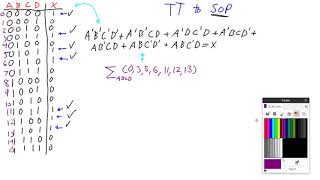 TT to SOP
A B C D X
0 0 0 0 0 1 ✓
1 0 0 0 1 0
2 0 0 1 0 0
3 0 0 1 1 1 ✓
4 0 1 0 0 0
5 0 1 0 1 1 ✓
6 0 1 1 0 1 ✓
7 0 1 1 1 0
8 1 0 0 0 0
9 1 0 0 1 0
10 1 0 1 0 0
11 1 0 1 1 1 ✓
12 1 1 0 0 1 ✓
13 1 1 0 1 1 ✓
14 1 1 1 0 0
15 1 1 1 1 0
A'B'C'D'+A'B'CD+A'BC'D+A'BCD'+
AB'CD+ABC'D'+ABC'D=X
∑ABCD (0,3,5,6,11,12,13)